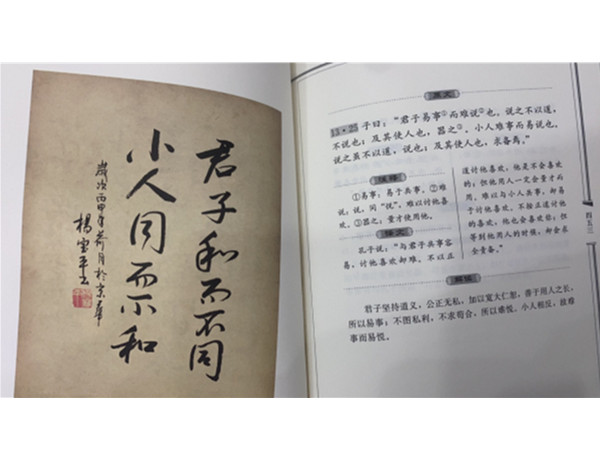 君子和而不同
小人同而不和
歲次丙申年荷月於京華
楊雪平書
原文
13·25 子曰：“君子易事①而难说②也，说之不以道，
不说也；及其使人也，器之③。小人难事而易说也，
说之虽不以道，说也；及其使人也，求备焉。”
注释
①易事：易于共事。②难
说：说，同“悦”，难以讨他喜
欢。③器之：量才使用他。
译文
孔子说：“与君子共事容
易，讨他喜欢却难，不以正
道讨他喜欢，他是不会喜欢
的；但他用人一定会量才而
用。难以与小人共事，却易
于讨他喜欢，不按正道讨他
的喜欢，他也会喜欢你；但
等到他用人的时候，却会求
全责备。”
解读
君子坚持道义，公正无私，加以宽大仁恕，善于用人之长，
所以易事；不图私利，不求苟合，所以难悦。小人相反，故难
事而易悦。
四五三